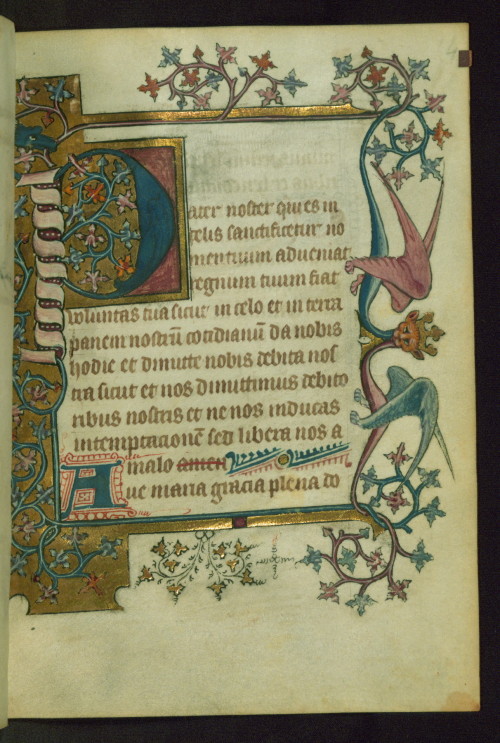 Pater noster qui es in
celis sanctificetur no
men tuum adveniat
regnum tuum fiat
voluntas tua sicut in celo et in terra
panem nostrū cotidianū da nobis
hodie et dimitte nobis debita nos
tra sicut et nos dimittimus debito
ribus nostris et ne nos inducas
in temptacionē sed libera nos a
malo amen
Ave maria gracia plena do